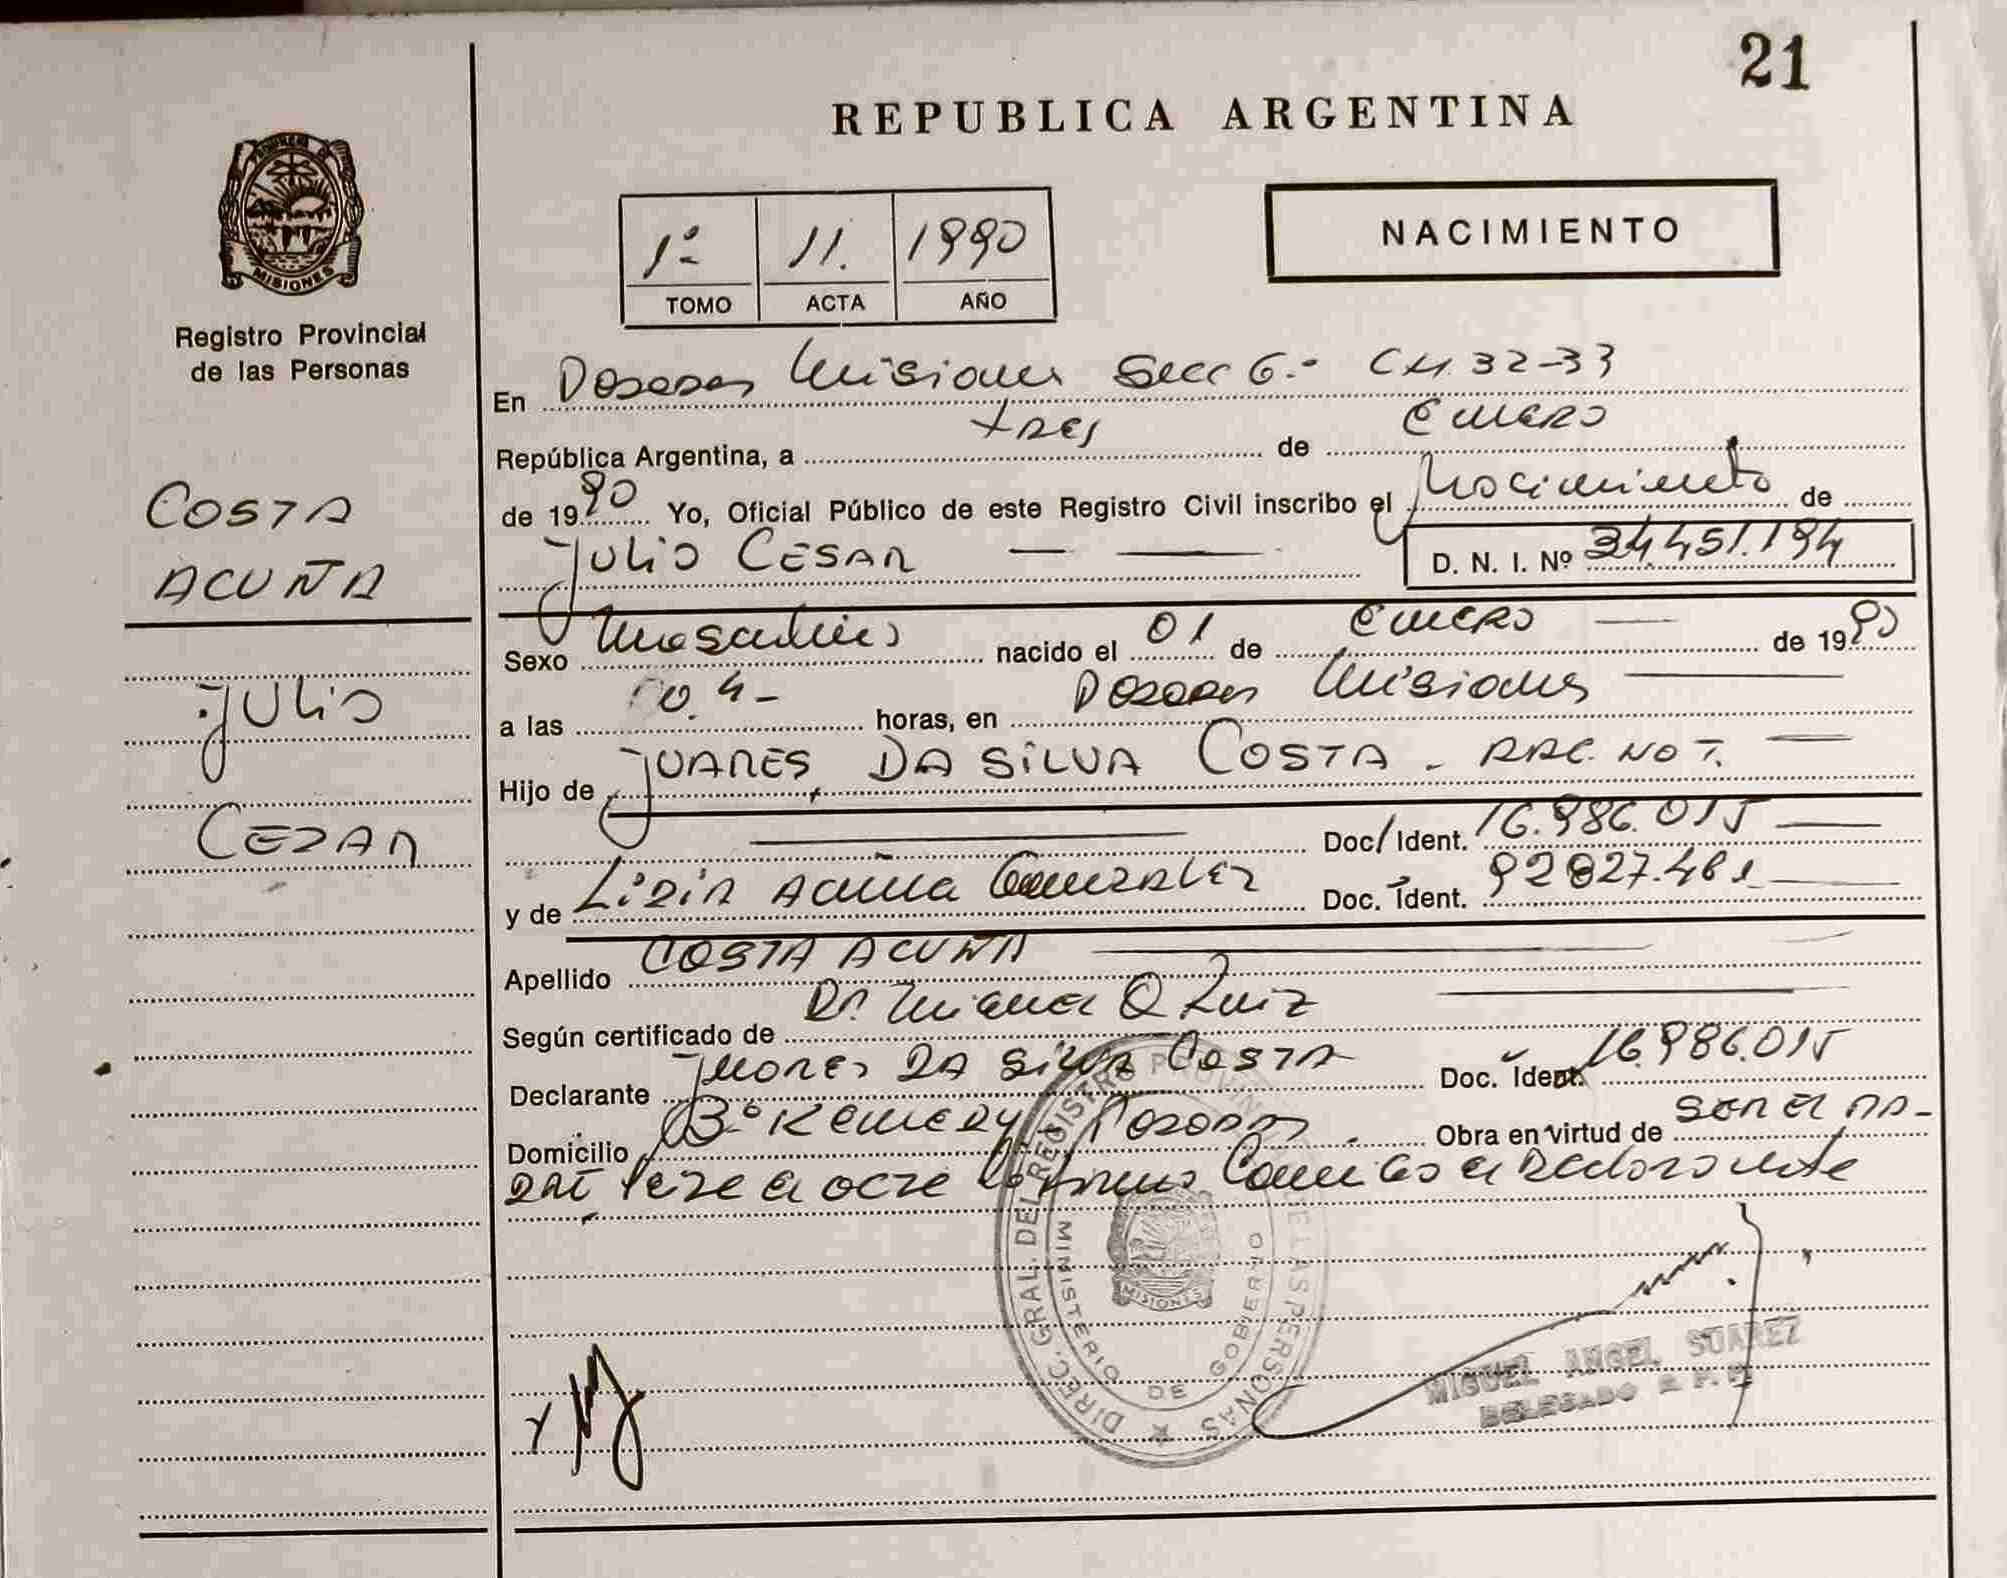 21
REPUBLICA ARGENTINA
PROVINCIA DE
MISIONES
Registro Provincial
de las Personas
1º 11. 1990
TOMO ACTA AÑO
NACIMIENTO
En Posadas Misiones Secc 6.- C 4. 32-33
República Argentina, a tres de Enero
de 1990 Yo, Oficial Público de este Registro Civil inscribo el Nacimiento de
JULIO CESAR
D. N. I. Nº 34451.194
COSTA
ACUÑA
JULIO
CEZAR
Sexo Masculino nacido el 01 de Enero de 1990
a las 4- horas, en Posadas Misiones
Hijo de JUARES DA SILVA COSTA - NOT.
Doc/Ident. 16.986.015
y de Lidia Acuña Gonzalez Doc. Ident. 92827.481
Apellido COSTA ACUÑA
Según certificado de Dr. Miguel Q Ruiz
Declarante Juares DA SILVA COSTA Doc. Ident. 16.986.015
Domicilio Bº Kennedy Posadas. Obra en virtud de SER EL PA-
DRE Leze el acta el Declarante
DIREC. GRAL. DEL REGISTRO PROVIN DE LAS PERSONAS
MINISTERIO DE GOBIERNO
MISIONES
MIGUEL ANGEL SUAREZ
DELEGADO R. P. P.